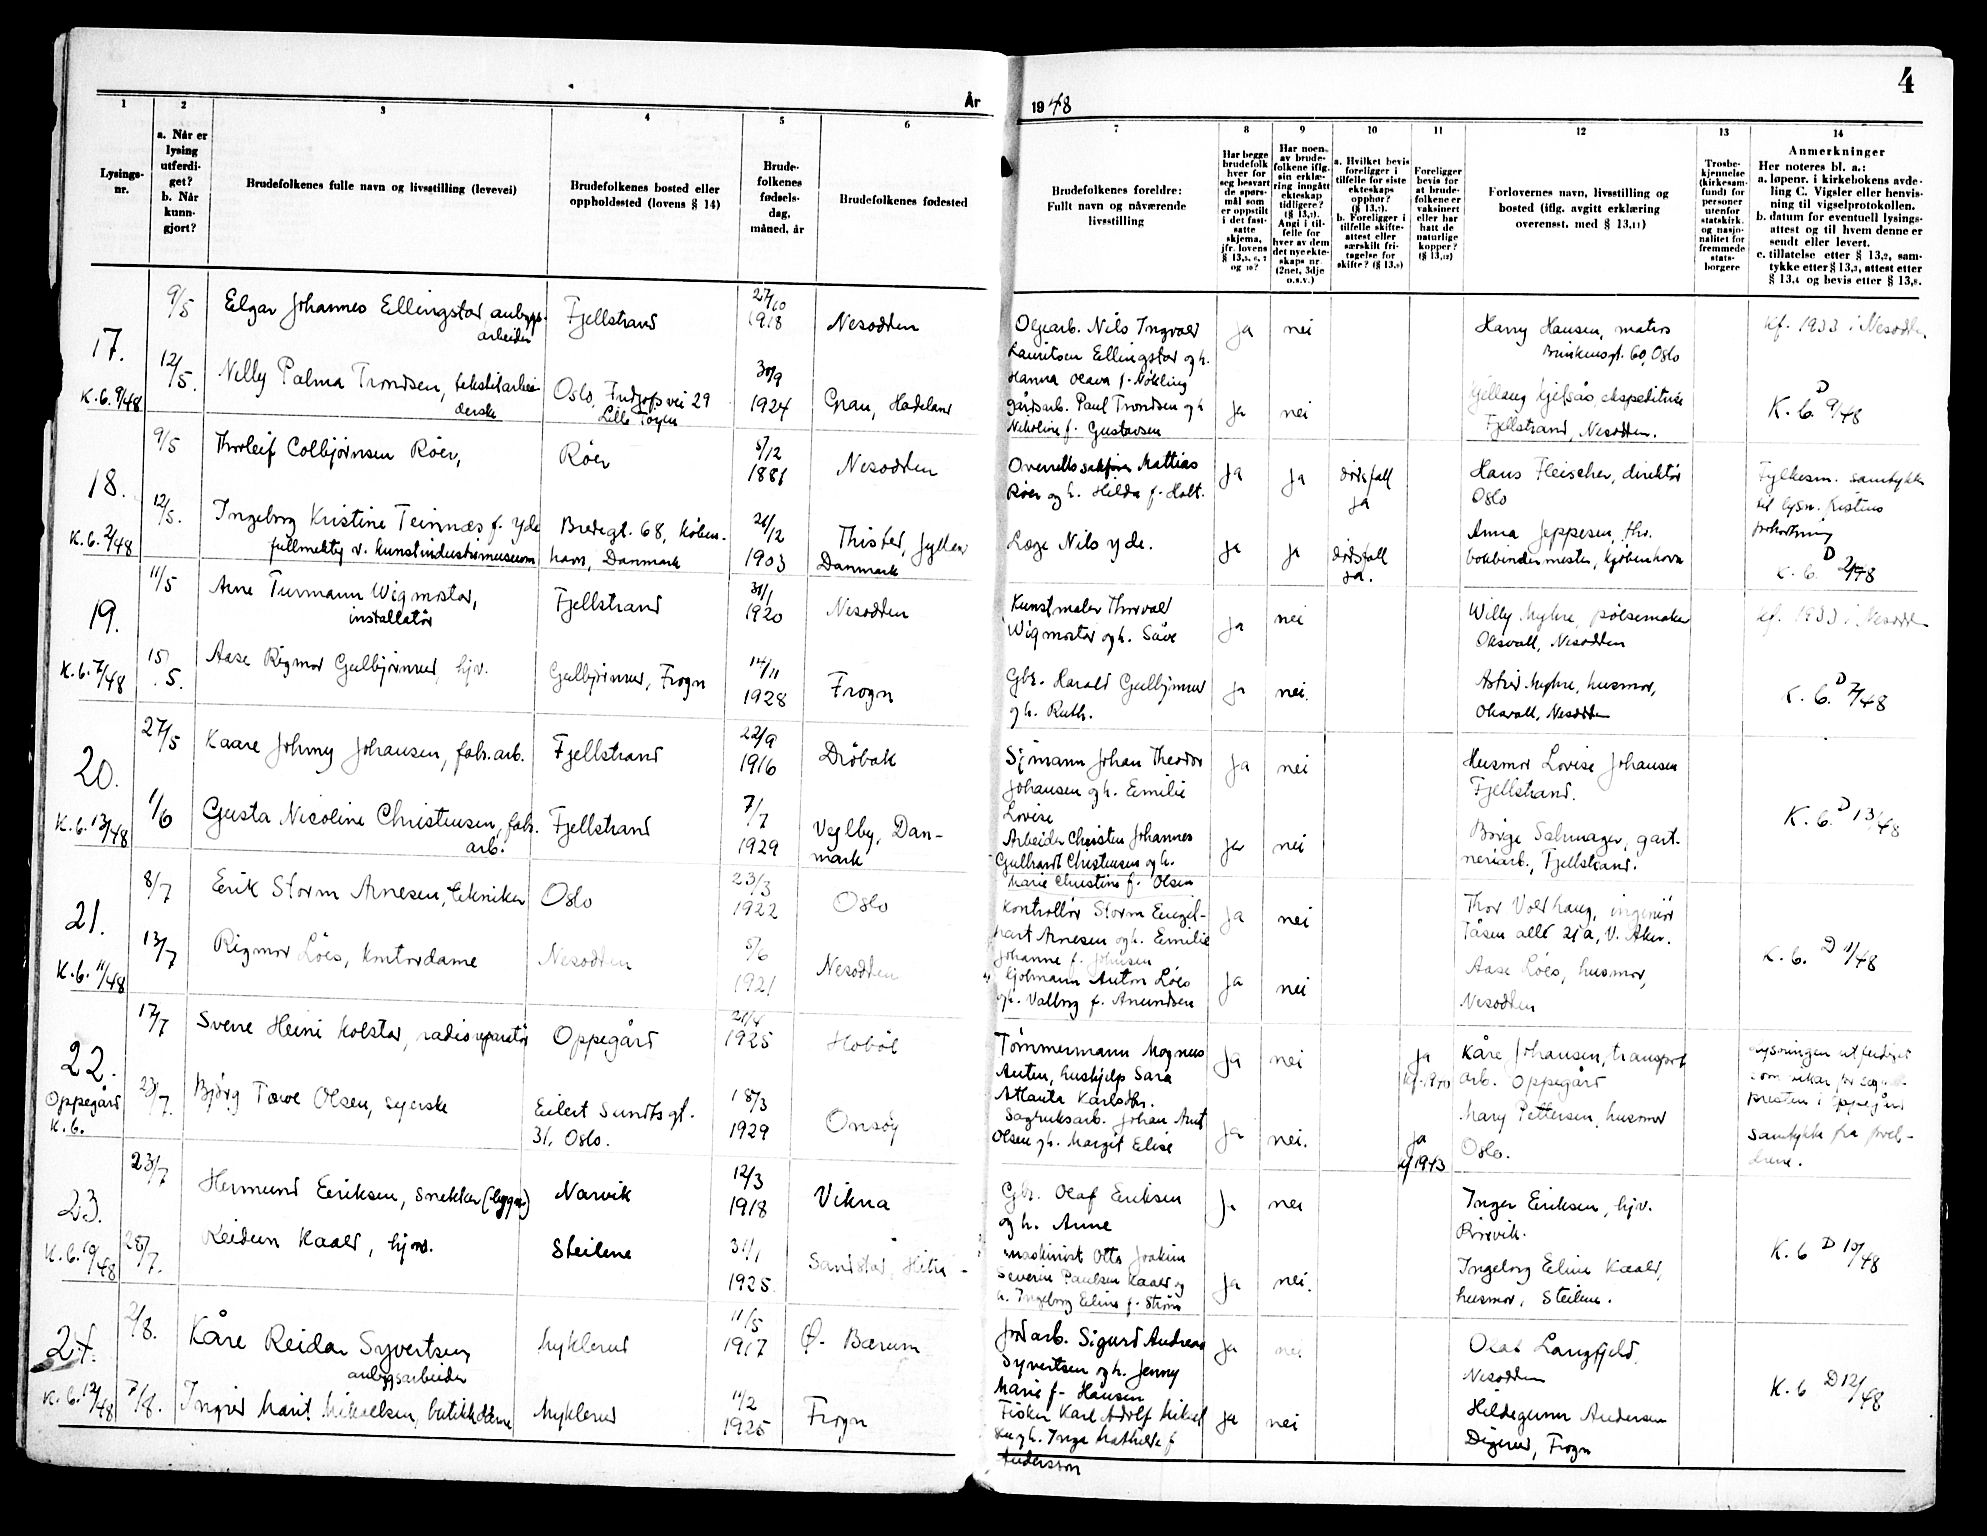 4
År
19 48
1
2
3
4
5
6
7
8
9
10
11
12
13
14
Lysings-
nr.
a. Når er
lysing
utferdi-
get?
b. Når
kunn-
gjort?
Brudefolkenes fulle navn og livsstilling (levevei)
Brudefolkenes bosted eller
oppholdssted (lovens § 14)
Brude-
folkenes
fødsels-
dag,
måned, år
Brudefolkenes fødested
Brudefolkenes foreldre:
Fullt navn og nåværende
livsstilling
Har begge
brudefolk
hver for
seg besvart
de spørs-
mål som
er oppstilt
i det fast-
satte
skjema,
jfr. lovens
§ 13,5, 6, 7
og 10?
Har noen
av brude-
folkene iflg.
sin erklæ-
ring inngått
ekteskap
tidligere?
(§ 13,7).
Angi i til-
felle for
hver av dem
det nye ekte-
skaps nr.
(2net, 3dje
o.s.v.)
a. Hvilket bevis
foreligger i
tilfelle for siste
ekteskaps
opphør?
(§ 13,7).
b. Foreligger i
tilfelle skifte-
attest eller
særskilt fri-
tagelse for
skifte? (§ 13,9)
Foreligger
bevis for
at brude-
folkene er
vaksinert
eller har
hatt de
naturlige
kopper?
(§ 13,12)
Forlovernes navn, livsstilling og
bosted (iflg. avgitt erklæring
overensst. med § 13,11)
Trosbe-
kjennelse
(kirkesam-
fund) for
personer
utenfor
statskirk.
og nasjo-
nalitet for
fremmede
stats-
borgere
Anmerkninger
Her noteres bl. a.:
a. løpenr. i kirkebokens avde-
ling C. Vigsler eller henvis-
ning til vigselprotokollen.
b. datum for eventuell lysings-
attest og til hvem denne er
sendt eller levert.
c. tillatelse etter § 13,2, sam-
tykke etter § 13,3, attest etter
§ 13,4 og bevis etter § 13,8.
17.
K.6. 9/48
9/5
12/5.
Elgar Johannes Ellingstad anleggs-
arbeider
Fjellstrand
27/10
1918
Nesodden
Nelly Palma Trondsen, tekstilarbei-
derske
Oslo, Fridjofs vei 29
Lille Tøyen
30/9
1924
Gran, Hadeland
Oljearb. Nils Ingvald
Lauritsen Ellingstad og h.
Hanna Olava f. Nøkling
ja
nei
Harry Hansen, matros
60, Oslo
kf. 1933 i Nesodden
Gårdsarb. Paul Trondsen og h
Nikoline f. Gustavsen
ja
nei
Gjellaug Kjelsås ekspeditrise
Fjellstrand, Nesodden.
K.6. D 9/48
18.
K.6. 2/48
9/5
12/5.
Thorleif Colbjørnsen Røer,
Røer
5/12
1881
Nesodden
Ingeborg Kristine Teinnæs f. Yde
fullmektig v. kunstindustrimuseum
Bredegt. 68, Køben-
havn, Danmark
26/12
1903
Thisted, Jylland
Danmark
Overrettssakfører Mattias
Røer og h. Hilda f. Holt.
ja
ja
dødsfall
ja
Hans Fleischer, direktør
Oslo
Fylkesm. samtykke
til lysn.
Læge Nils Yde.
ja
ja
dødsfall
ja.
Anna Jeppesen, fhv.
bokbindermester, Kjøbenhavn
K.6. D 2/48
19.
K.6. 7/48
11/5
15/5.
Arne Turmann Wigmostad,
installatør
Fjellstrand
31/1
1920
Nesodden
Aase Rigmor Gulbjørnrud, hjv.
Gulbjørnrud, Frogn
14/11
1928
Frogn
Kunstmaler Thorvald
Wigmostad og h. Save
ja
nei
Willy Myhre, pølsemaker
Oksvall, Nesodden
kf. 1933 i Nesodden
Gbr. Harald Gulbjørnrud
og h. Ruth.
ja
nei.
Astrid Myhre, husmor,
Oksvall, Nesodden
K.6. D 7/48
20.
K.6. 13/48
27/5
1/6
Kaare Johnny Johansen, fabr.arb.
Fjellstrand
22/9
1916
Drøbak
Gusta Nicoline Christensen, fabr.
arb.
Fjellstrand
7/7
1929
Veglby, Dan-
mark
Sjømann Johan Theodor
Johansen og h. Emilie
Lovise
ja
nei
Husmor Lovise Johansen
Fjellstrand.
Arbeider Christen Johannes
Gullhardt Christensen og h.
Marie Christine f. Olsen
ja
nei
Børge Salmager, gart-
neriarb., Fjellstrand.
K.6. D 13/48
21.
K.6. 11/48
8/7
13/7
Erik Storm Arnesen, tekniker
Oslo
23/3
1922
Oslo
Rigmor Löes, kontordame
Nesodden
5/6
1921
Nesodden
Kontrollør Storm Engel-
hart Arnesen og h. Emilie
Johanne f. Johnsen
ja
nei
Thor Voldhaug, ingeniør
Tåsen allé 21a, V. Aker.
Sjømann Anton Löes
og h. Valborg f. Amundsen
ja
nei
Aase Löes, husmor,
Nesodden
K.6. D 11/48
22.
Oppegård
K.6.
17/7
23/7.
Sverre Heine Kolstad, radioreparatør
Oppegård
21/4
1925
Hobøl
Bjørg Tove Olsen, syerske
Eilert Sundts gt.
31. Oslo.
18/3
1929
Onsøy
Tömmermann Magnus
Anten, hushjelp Sara
Atlanta Karlsdtr.
ja
nei
ja
Kåre Johansen, transport
arb. Oppegård
Lysningen utferdiget
som vikar for sogne-
presten i Oppegård
Sagbruksarb. Johan Arnt
Olsen og h. Margit Elise
ja
nei.
ja
kf 1943
Mary Pettersen, husmor
Oslo.
Samtykke fra forel-
drene.
23.
K.6. 10/48
23/7
28/7.
Hermund Eriksen, snekker (bygn.)
Narvik
12/3
1918
Vikna
Reidun Kaald, hjv.
Steilene
31/1
1925.
Sandstad, Hitra
Gbr. Olaf Eriksen
og h. Anne
ja
nei
Inger Eriksen, hjv.
Maskinist Otto Joakim
Severin Paulsen Kaald og
h. Ingeborg Eline f. Strøm
ja
nei.
Ingeborg Eline Kaald,
husmor, Steilene.
K.6 D 10/48
24.
K.6. 12/48
2/8.
7/8.
Kåre Reidar Syvertsen
anleggsarbeider
Myklerud
11/5
1917
Ø. Bærum
Ingrid Marit Mikaelsen, butikkdame
Myklerud
11/2
1925
Frogn
Jordarb. Sigurd Andreas
Syvertsen og h. Jenny
Marie f. Hansen
ja
nei
Olaf Langfjeld
Nesodden
Fisker Karl Adolf Mikael
sen og h. Inga Mathilde f
Andersson
ja
nei
Hildegunn Andersen
Digerud, Frogn
K.6 D 12/48